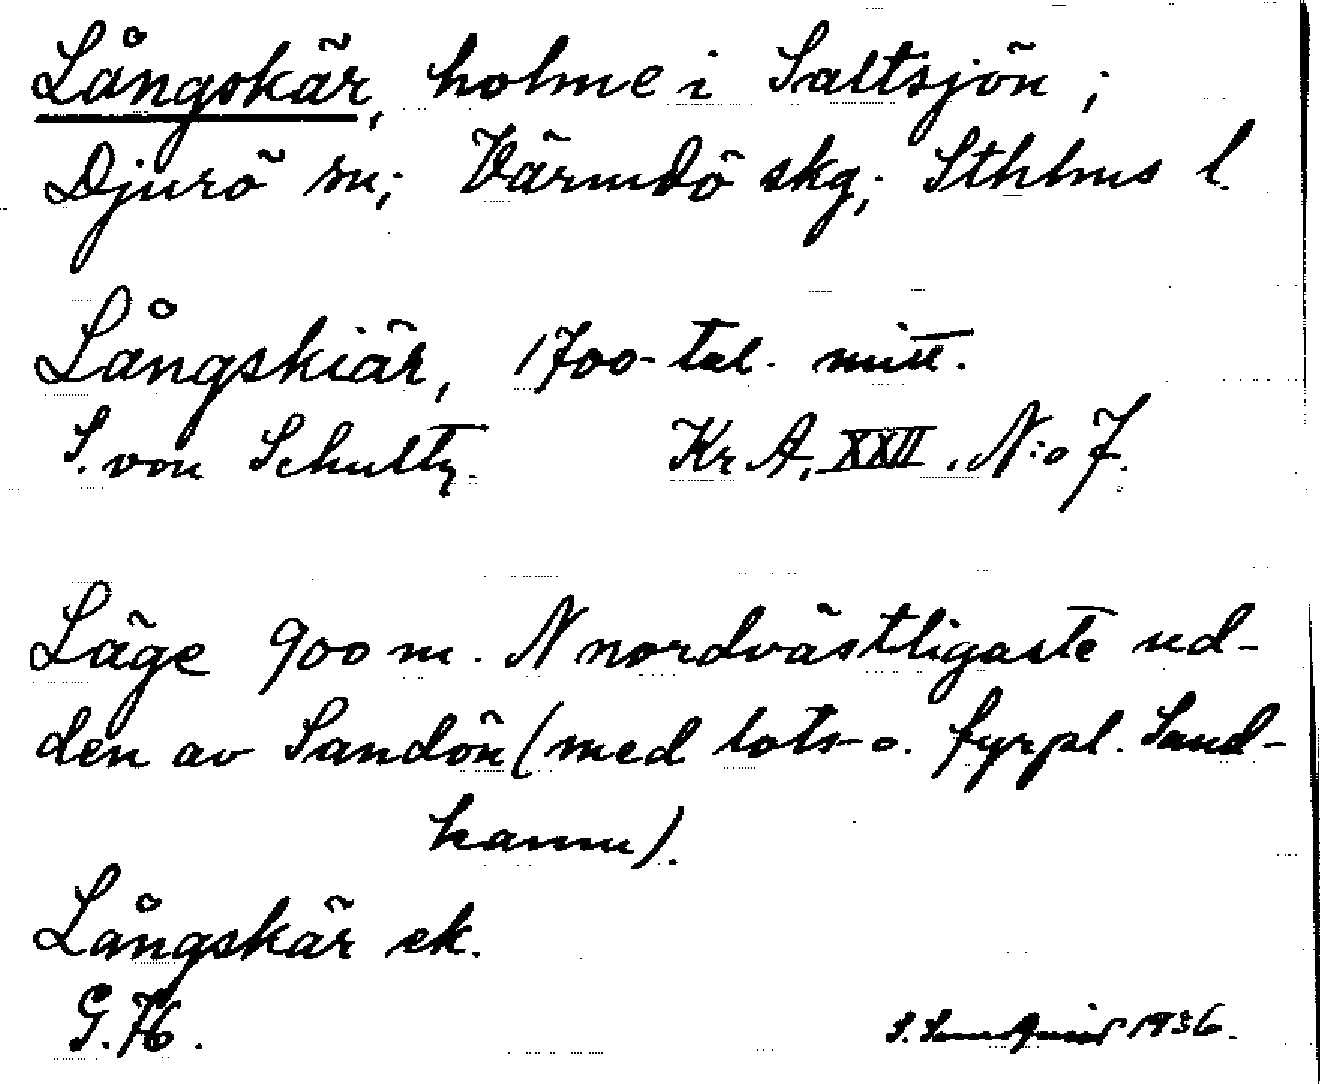 Långskär, holme i Saltsjön;
Djurö sn; Värmdö skg; Sthlms l.
Långskiär, 1700-tal. mitt.
S. von Schultz. Kr A, XXII. N:o 7.
Läge 900 m. N nordvästligaste ud-
den av Sandön (med lots- o. fyrpl. Sand-
hamn).
Långskär ek.
G. 76.
S. 1936.